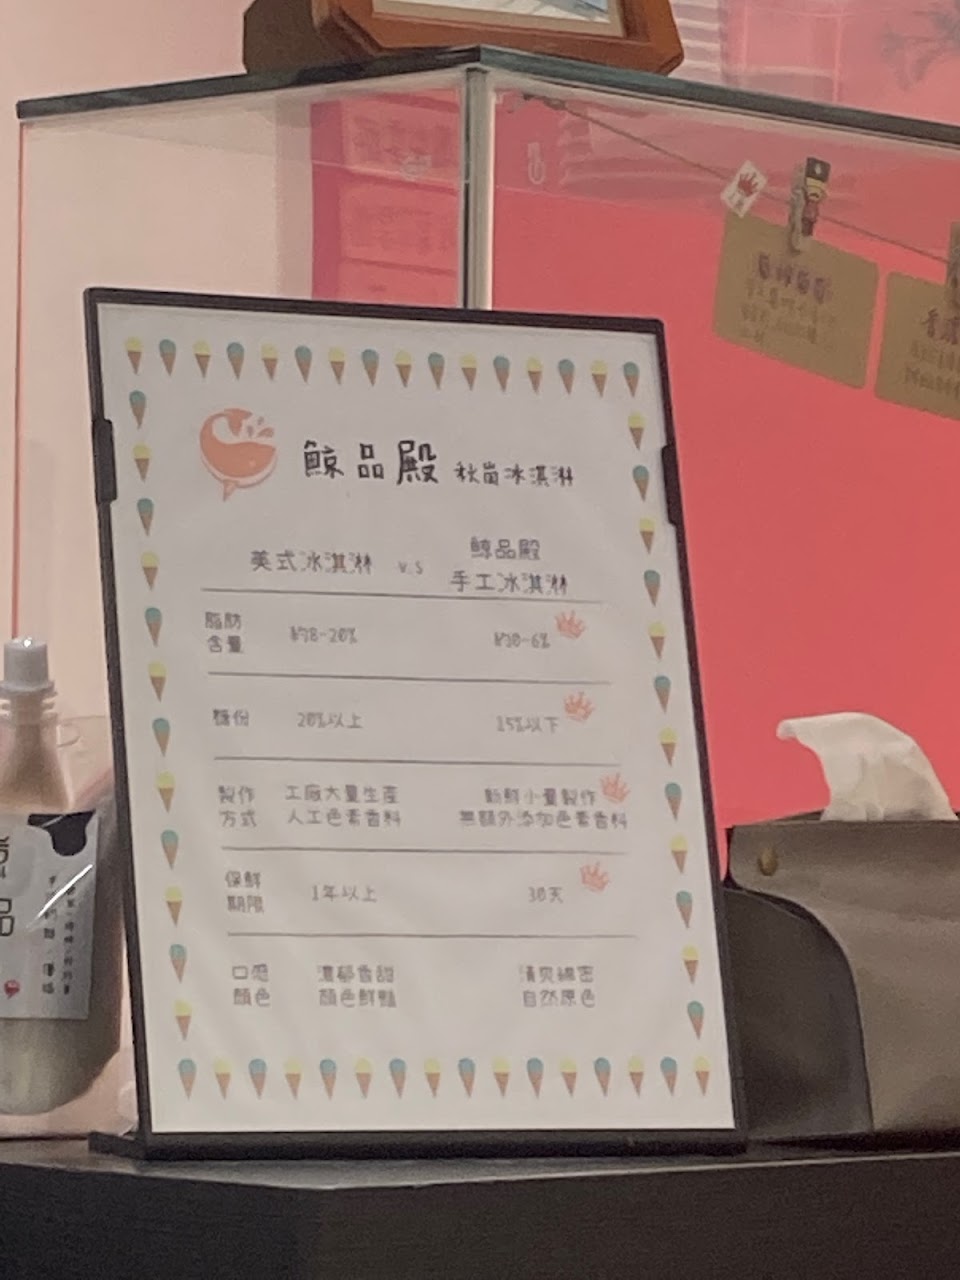 鯨品殿 秋崗冰淇淋
英式冰淇淋 v.s 鯨品殿
手工冰淇淋
脂肪
含量
約8-20%
約0-6%
糖份 20%以上 15%以下
製作
方式
工廠大量生產
人工色素香料
新鮮小量製作
無額外添加色素香料
保鮮
期限
1年以上
30天
口感
顏色
濃郁香甜
顏色鮮豔
清爽綿密
自然原色
品